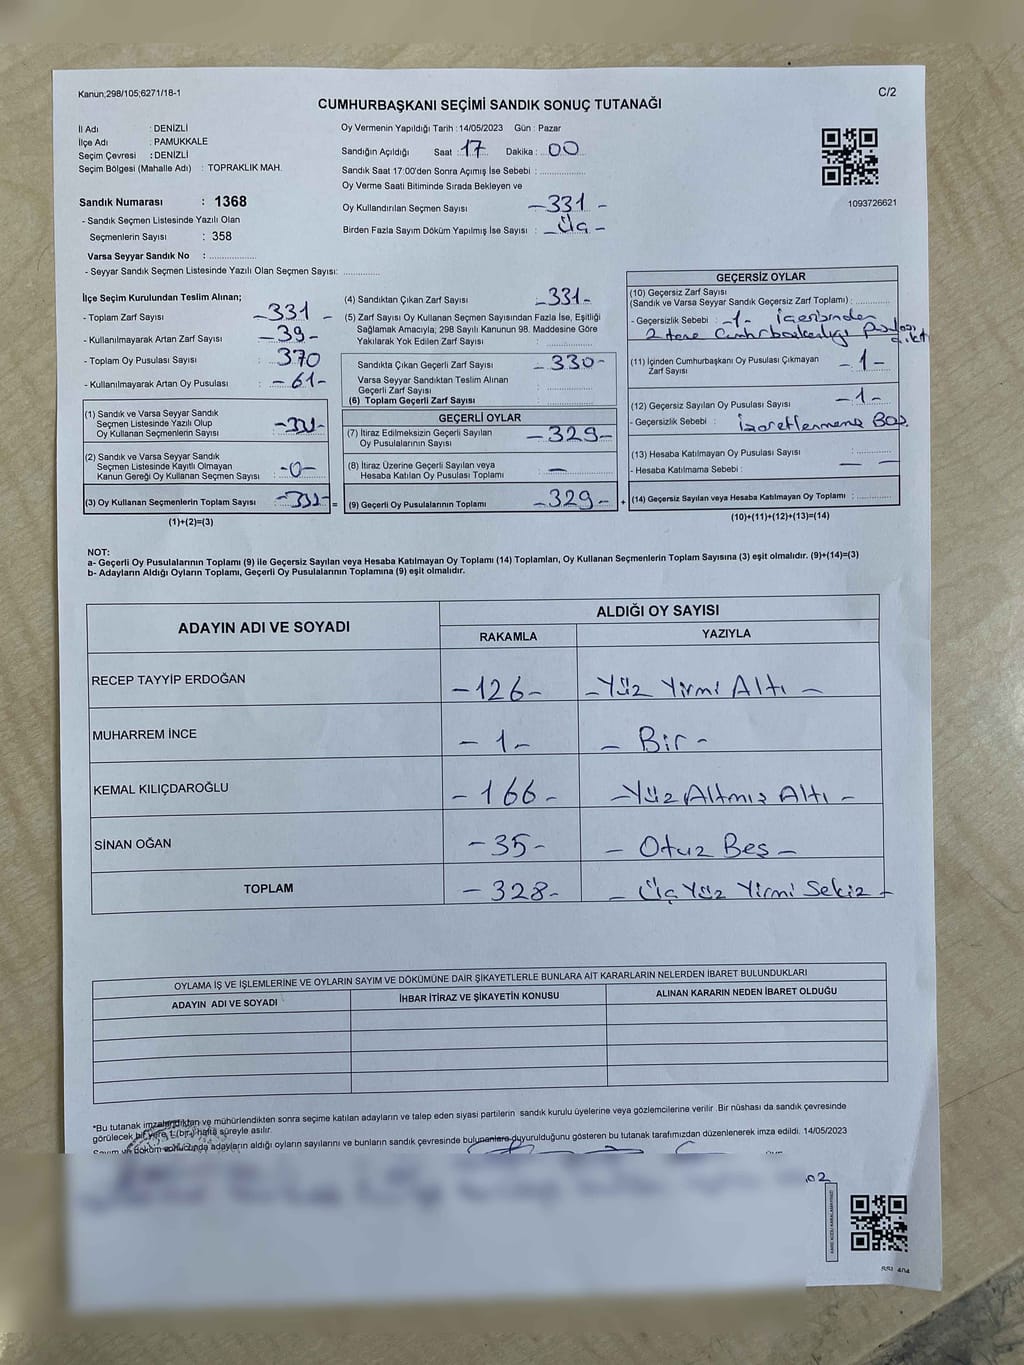 Kanun;298/105;6271/18-1
C/2
CUMHURBAŞKANI SEÇİMİ SANDIK SONUÇ TUTANAĞI
İl Adı : DENİZLİ
İlçe Adı : PAMUKKALE
Seçim Çevresi : DENİZLİ
Seçim Bölgesi (Mahalle Adı) : TOPRAKLIK MAH.
Sandık Numarası : 1368
- Sandık Seçmen Listesinde Yazılı Olan
Seçmenlerin Sayısı : 358
Varsa Seyyar Sandık No : ..................
- Seyyar Sandık Seçmen Listesinde Yazılı Olan Seçmen Sayısı: ..............
Oy Vermenin Yapıldığı Tarih : 14/05/2023 Gün : Pazar
Sandığın Açıldığı Saat : 17 Dakika : 00
Sandık Saat 17:00'den Sonra Açımış İse Sebebi : ..................
Oy Verme Saati Bitiminde Sırada Bekleyen ve
Oy Kullandırılan Seçmen Sayısı – 331 –
Birden Fazla Sayım Döküm Yapılmış İse Sayısı : – Üç –
1093726621
İlçe Seçim Kurulundan Teslim Alınan;
- Toplam Zarf Sayısı : – 331 –
- Kullanılmayarak Artan Zarf Sayısı : – 39 –
- Toplam Oy Pusulası Sayısı : 370
- Kullanılmayarak Artan Oy Pusulası : – 61 –
(1) Sandık ve Varsa Seyyar Sandık
Seçmen Listesinde Yazılı Olup
Oy Kullanan Seçmenlerin Sayısı – 331 –
(2) Sandık ve Varsa Seyyar Sandık
Seçmen Listesinde Kayıtlı Olmayan
Kanun Gereği Oy Kullanan Seçmen Sayısı : – 0 –
(3) Oy Kullanan Seçmenlerin Toplam Sayısı : – 331 – =
(1)+(2)=(3)
(4) Sandıktan Çıkan Zarf Sayısı – 331 –
(5) Zarf Sayısı Oy Kullanan Seçmen Sayısından Fazla İse, Eşitliği
Sağlamak Amacıyla; 298 Sayılı Kanunun 98. Maddesine Göre
Yakılarak Yok Edilen Zarf Sayısı : ..............
Sandıkta Çıkan Geçerli Zarf Sayısı – 330 –
Varsa Seyyar Sandıktan Teslim Alınan
Geçerli Zarf Sayısı : ..............
(6) Toplam Geçerli Zarf Sayısı : ..............
GEÇERLİ OYLAR
(7) İtiraz Edilmeksizin Geçerli Sayılan
Oy Pusulalarının Sayısı – 329 –
(8) İtiraz Üzerine Geçerli Sayılan veya
Hesaba Katılan Oy Pusulası Toplamı : –
(9) Geçerli Oy Pusulalarının Toplamı – 329 – +
GEÇERSİZ OYLAR
(10) Geçersiz Zarf Sayısı
(Sandık ve Varsa Seyyar Sandık Geçersiz Zarf Toplamı) : ............
- Geçersizlik Sebebi : – 1 – içerisinden
2 tane Cumhurbaşkanlığı pusulası çıktı
(11) İçinden Cumhurbaşkanı Oy Pusulası Çıkmayan
Zarf Sayısı – 1 –
(12) Geçersiz Sayılan Oy Pusulası Sayısı – 1 –
- Geçersizlik Sebebi : İşaretlenmemiş Boş.
(13) Hesaba Katılmayan Oy Pusulası Sayısı : ............
- Hesaba Katılmama Sebebi : — —
(14) Geçersiz Sayılan veya Hesaba Katılmayan Oy Toplamı : ............
(10)+(11)+(12)+(13)=(14)
NOT:
a- Geçerli Oy Pusulalarının Toplamı (9) ile Geçersiz Sayılan veya Hesaba Katılmayan Oy Toplamı (14) Toplamları, Oy Kullanan Seçmenlerin Toplam Sayısına (3) eşit olmalıdır. (9)+(14)=(3)
b- Adayların Aldığı Oyların Toplamı, Geçerli Oy Pusulalarının Toplamına (9) eşit olmalıdır.
ADAYIN ADI VE SOYADI ALDIĞI OY SAYISI
RAKAMLA YAZIYLA
RECEP TAYYİP ERDOĞAN – 126 – – Yüz Yirmi Altı –
MUHARREM İNCE – 1 – – Bir –
KEMAL KILIÇDAROĞLU – 166 – – Yüz Altmış Altı –
SİNAN OĞAN – 35 – – Otuz Beş –
TOPLAM – 328 – – Üç Yüz Yirmi Sekiz –
OYLAMA İŞ VE İŞLEMLERİNE VE OYLARIN SAYIM VE DÖKÜMÜNE DAİR ŞİKAYETLERLE BUNLARA AİT KARARLARIN NELERDEN İBARET BULUNDUKLARI
ADAYIN ADI VE SOYADI İHBAR İTİRAZ VE ŞİKAYETİN KONUSU ALINAN KARARIN NEDEN İBARET OLDUĞU
*Bu tutanak imzalandıktan ve mühürlendikten sonra seçime katılan adayların ve talep eden siyasi partilerin sandık kurulu üyelerine veya gözlemcilerine verilir .Bir nüshası da sandık çevresinde
görülecek bir yere 1 (bir) hafta süreyle asılır.
Sayım ve döküm sonucunda adayların aldığı oyların sayılarını ve bunların sandık çevresinde bulunanlara duyurulduğunu gösteren bu tutanak tarafımızdan düzenlenerek imza edildi. 14/05/2023